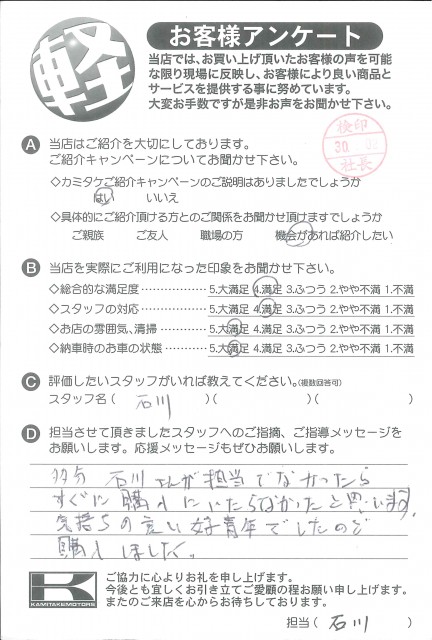 軽
お客様アンケート
当店では、お買い上げ頂いたお客様の声を可能
な限り現場に反映し、お客様により良い商品と
サービスを提供する事に努めています。
大変お手数ですが是非お声をお聞かせ下さい。
検印
30
社長
A 当店はご紹介を大切にしております。
ご紹介キャンペーンについてお聞かせ下さい。
◇カミタケご紹介キャンペーンのご説明はありましたでしょうか
はい いいえ
◇具体的にご紹介頂ける方とのご関係をお聞かせ頂けますでしょうか
ご親族 ご友人 職場の方 機会があれば紹介したい
B 当店を実際にご利用になった印象をお聞かせ下さい。
◇総合的な満足度……………… 5.大満足 4.満足 3.ふつう 2.やや不満 1.不満
◇スタッフの対応……………… 5.大満足 4.満足 3.ふつう 2.やや不満 1.不満
◇お店の雰囲気、清掃………… 5.大満足 4.満足 3.ふつう 2.やや不満 1.不満
◇納車時のお車の状態………… 5.大満足 4.満足 3.ふつう 2.やや不満 1.不満
C 評価したいスタッフがいれば教えてください。(複数回答可)
スタッフ名( 石川 )( )( )
D 担当させて頂きましたスタッフへのご指摘、ご指導メッセージを
お願いします。応援メッセージもぜひお願いします。
多分 石川さんが担当でなかったら
すぐに購入にいたらなかったと思います。
気持ちの良い好青年でしたので
購入しました。
K
KAMITAKEMOTORS
ご協力に心よりお礼を申し上げます。
今後とも宜しくお引き立てご愛顧の程お願い申し上げます。
またのご来店を心からお待ちしております。
担当( 石川 )